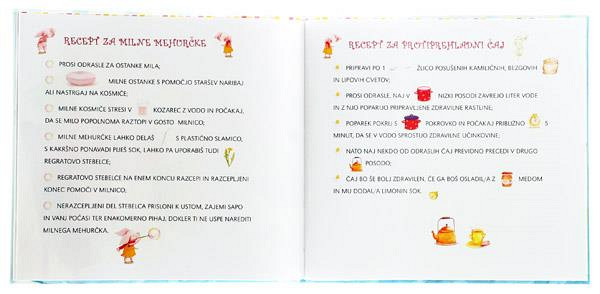 RECEPT ZA MILNE MEHURČKE
PROSI ODRASLE ZA OSTANKE MILA;
MILNE OSTANKE S POMOČJO STARŠEV NARIBAJ
ALI NASTRGAJ NA KOSMIČE;
MILNE KOSMIČE STRESI V KOZAREC Z VODO IN POČAKAJ,
DA SE MILO POPOLNOMA RAZTOPI V GOSTO MILNICO;
MILNE MEHURČKE LAHKO DELAŠ S PLASTIČNO SLAMICO,
S KAKRŠNO PONAVADI PIJEŠ SOK, LAHKO PA UPORABIŠ TUDI
REGRATOVO STEBELCE;
REGRATOVO STEBELCE NA ENEM KONCU RAZCEPI IN RAZCEPLJENI
KONEC POMOČI V MILNICO,
NERAZCEPLJENI DEL STEBELCA PRISLONI K USTOM, ZAJEMI SAPO
IN VANJ POČASI TER ENAKOMERNO PIHAJ, DOKLER TI NE USPE NAREDITI
MILNEGA MEHURČKA.
RECEPT ZA PROTIPREHLADNI ČAJ
PRIPRAVI PO 1 ŽLICO POSUŠENIH KAMILIČNIH, BEZGOVIH
IN LIPOVIH CVETOV;
PROSI ODRASLE, NAJ V NIZKI POSODI ZAVREJO LITER VODE
IN Z NJO POPARIJO PRIPRAVLJENE ZDRAVILNE RASTLINE;
POPAREK POKRIJ S POKROVKO IN POČAKAJ PRIBLIŽNO 5
MINUT, DA SE V VODO SPROSTIJO ZDRAVILNE UČINKOVINE;
NATO NAJ NEKDO OD ODRASLIH ČAJ PREVIDNO PRECEDI V DRUGO
POSODO;
ČAJ BO ŠE BOLJ ZDRAVILEN, ČE GA BOŠ OSLADIL/A Z MEDOM
IN MU DODAL/A LIMONIN SOK.